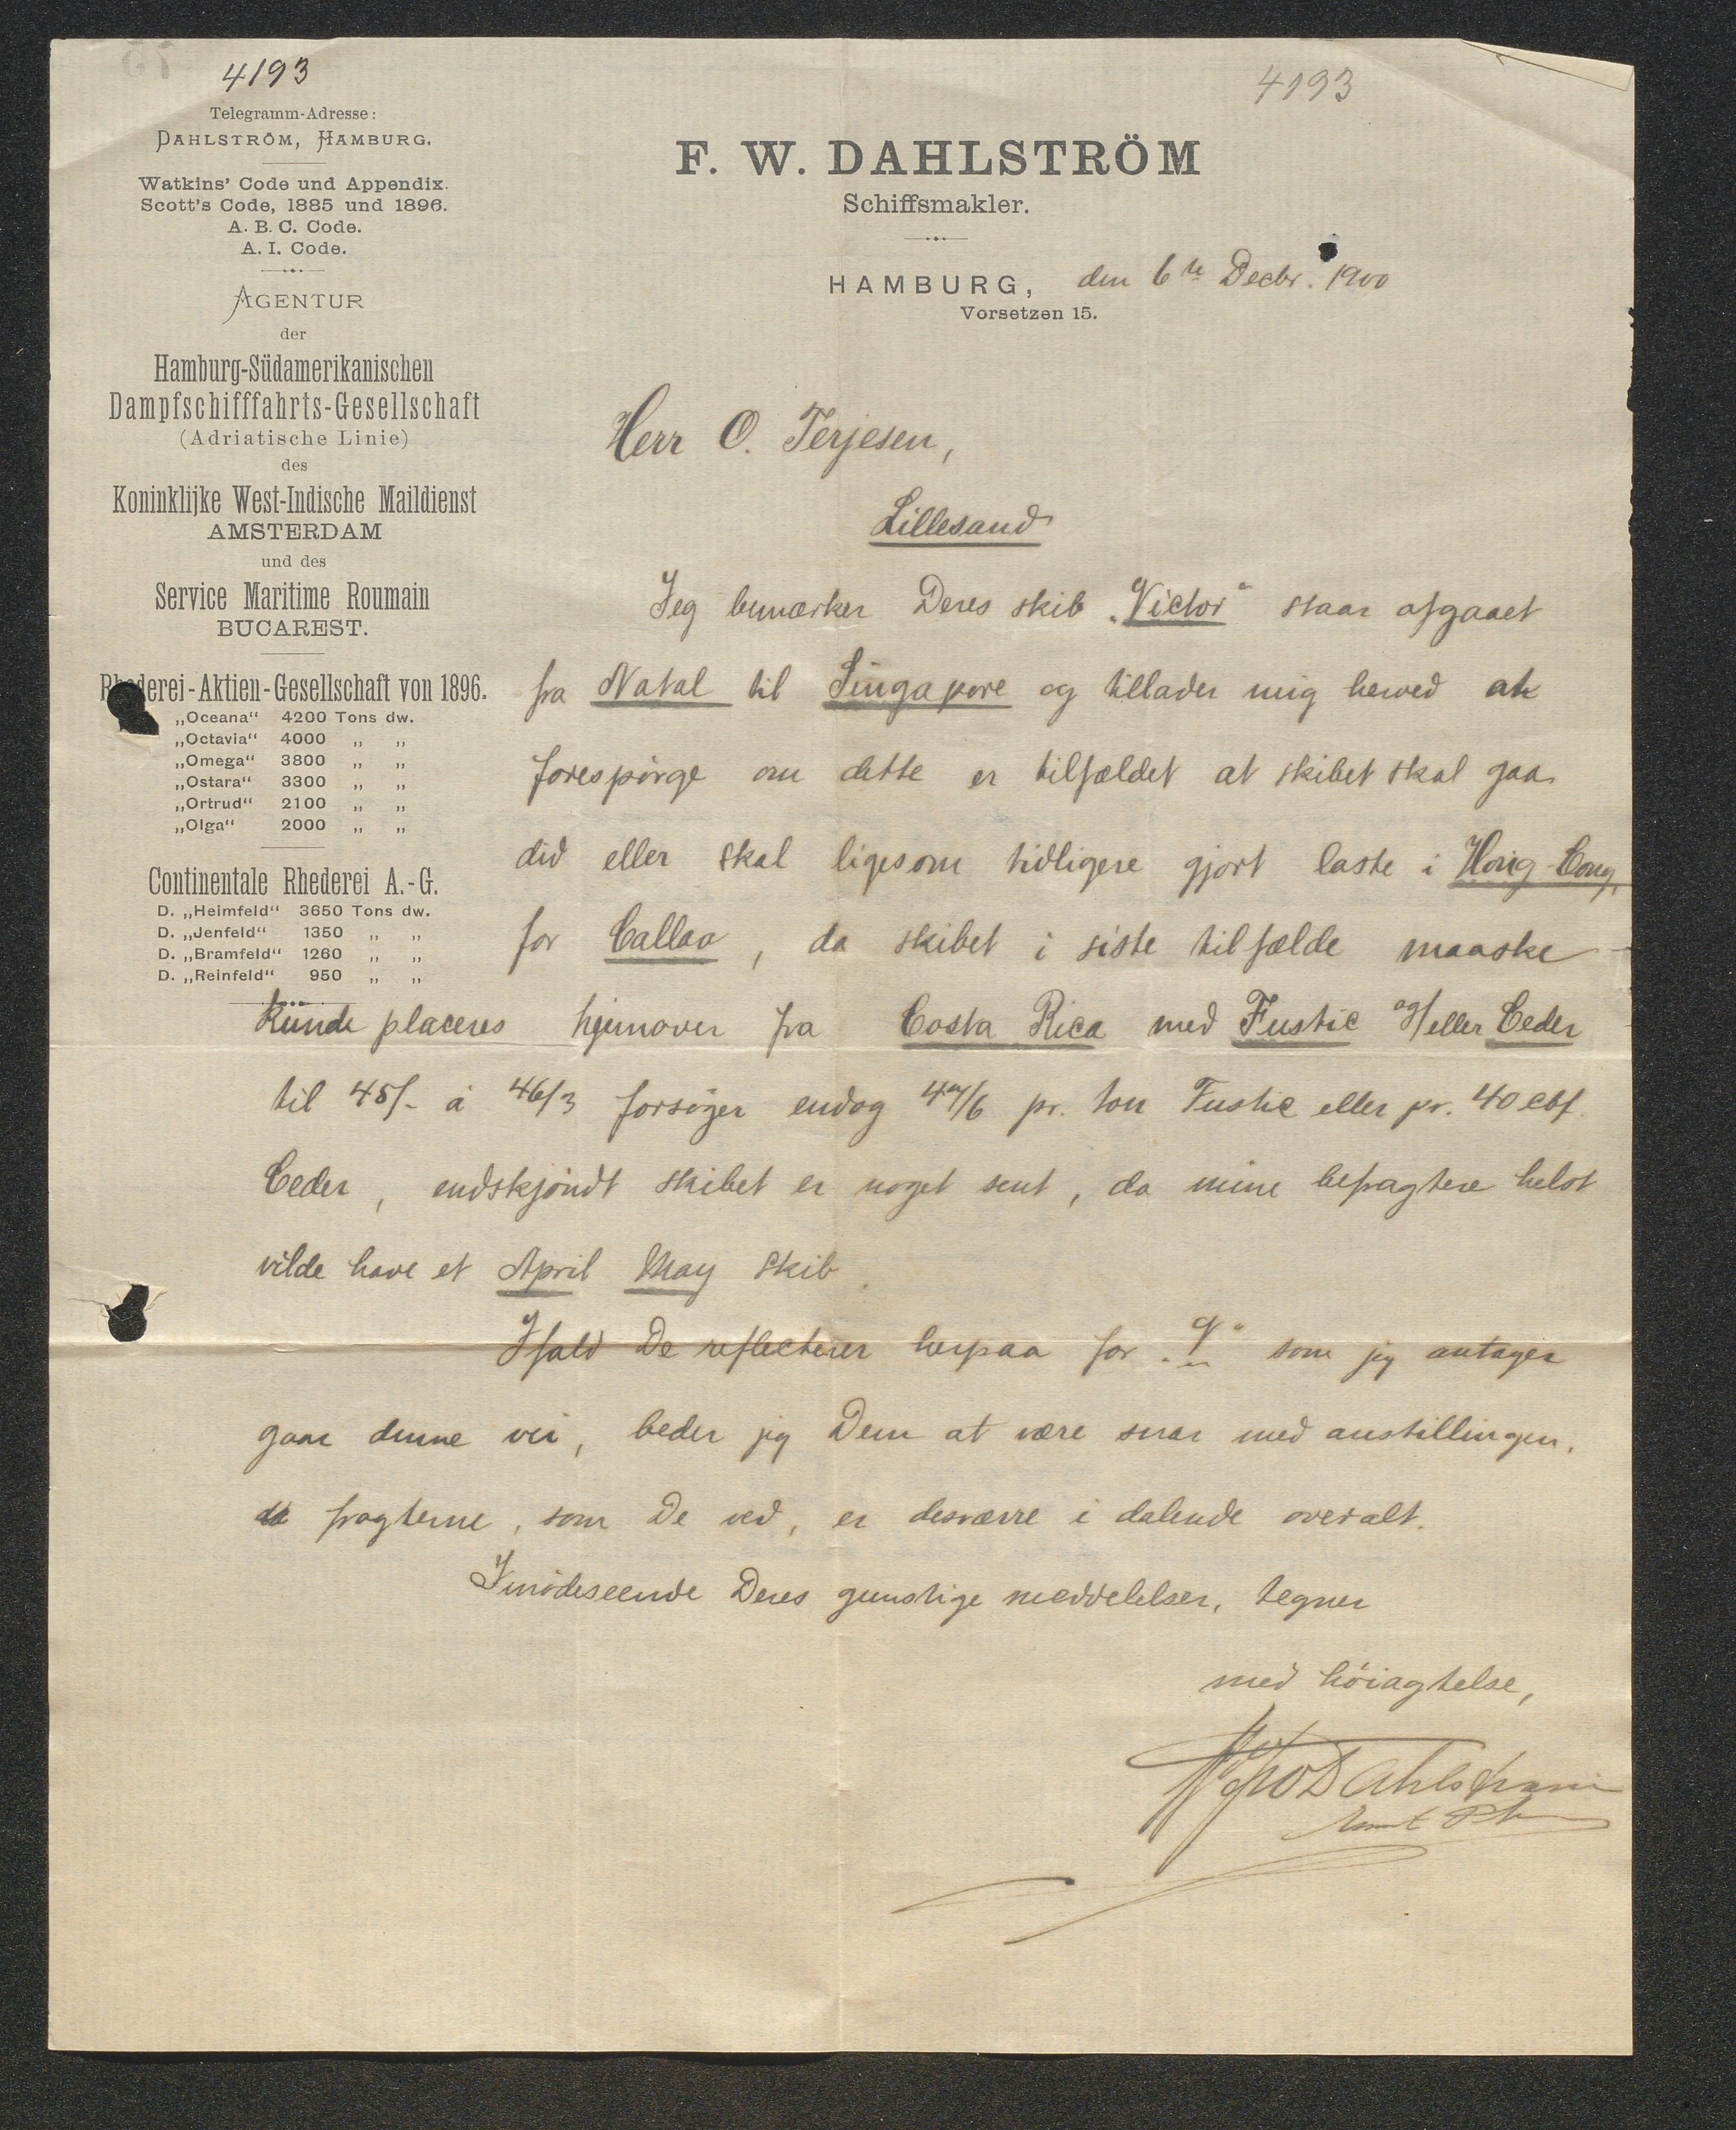 4193
4193
Telegramm-Adresse:
DAHLSTRÖM, HAMBURG.
Watkins' Code und Appendix.
Scott's Code, 1885 und 1896.
A. B. C. Code.
A. I. Code.
AGENTUR
der
Hamburg-Südamerikanischen
Dampfschifffahrts-Gesellschaft
(Adriatische Linie)
des
Koninklijke West-Indische Maildienst
AMSTERDAM
und des
Service Maritime Roumain
BUCAREST.
Rhederei-Aktien-Gesellschaft von 1896.
„Oceana“ 4200 Tons dw.
„Octavia“ 4000 „ „
„Omega“ 3800 „ „
„Ostara“ 3300 „ „
„Ortrud“ 2100 „ „
„Olga“ 2000 „ „
Continentale Rhederei A.-G.
D. „Heimfeld“ 3650 Tons dw.
D. „Jenfeld“ 1350 „ „
D. „Bramfeld“ 1260 „ „
D. „Reinfeld“ 950 „ „
F. W. DAHLSTRÖM
Schiffsmakler.
HAMBURG, den 6te Decbr. 1900
Vorsetzen 15.
Herr O. Terjesen,
Lillesand
Jeg bemærker Deres skib „Victor“ staar afgaaet
fra Natal til Singapore og tillader mig herved at
forespörge om dette er tilfældet at skibet skal gaa
did eller skal ligesom tidligere gjort laste i Hong-Cong,
for Callao, da skibet i siste tilfælde maaske
kunde placeres hjemover fra Costa Rica med Fustic og/eller Ceder
til 45/- à 46/3 forsöger endog 47/6 pr. ton Fustic eller pr. 40 cbf.
Ceder, endskjöndt skibet er noget sent, da mine befragtere helst
vilde have et April May skib.
Ifald De reflecterer herpaa for „V“ som jeg antager
gaar denne vei, beder jeg Dem at være snar med anstillingen,
da fragterne, som De ved, er desværre i dalende overalt.
Imödeseende Deres gunstige meddelelser, tegner
med höiagtelse,
FW Dahlström